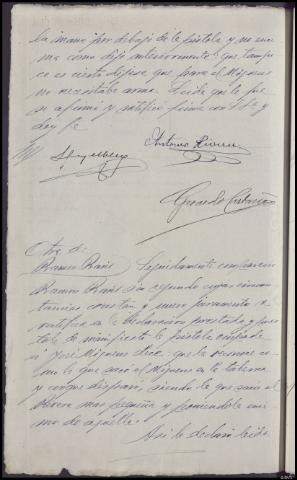 la mano por debajo de la pistola y no enci
ma como dijo anteriormente: que tampo
co es cierto dijese que para el Migueus
no necesitaba arma. Leida que le fue
se afirmó y ratificó firma con S.Sª. y
doy fe
Antonio Rivera
Gerardo
Otra de
Ramon Rañó Seguidamente comparecio
Ramon Rañó sin segundo cuyas circuns
tancias constan y previo juramento se
ratifico en la declaracion prestada y pues
tale de manifiesto la pistola ocupada
a José Migueus dice: que la reconoce co
mo la que sacó el Migueus en la taberna
y con que disparó, siendo la que sacó el
Rivera mas pequeña y poniendole enci
ma de aquella.
Asi lo declara leida